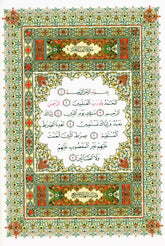 بِسْمِ ٱللَّهِ ٱلرَّحْمَٰنِ ٱلرَّحِيمِ
ٱلْحَمْدُ لِلَّهِ رَبِّ ٱلْعَٰلَمِينَ ٱلرَّحْمَٰنِ
ٱلرَّحِيمِ مَٰلِكِ يَوْمِ ٱلدِّينِ إِيَّاكَ
نَعْبُدُ وَإِيَّاكَ نَسْتَعِينُ ٱهْدِنَا ٱلصِّرَٰطَ
ٱلْمُسْتَقِيمَ صِرَٰطَ ٱلَّذِينَ أَنْعَمْتَ
عَلَيْهِمْ غَيْرِ ٱلْمَغْضُوبِ عَلَيْهِمْ
وَلَا ٱلضَّآلِّينَ